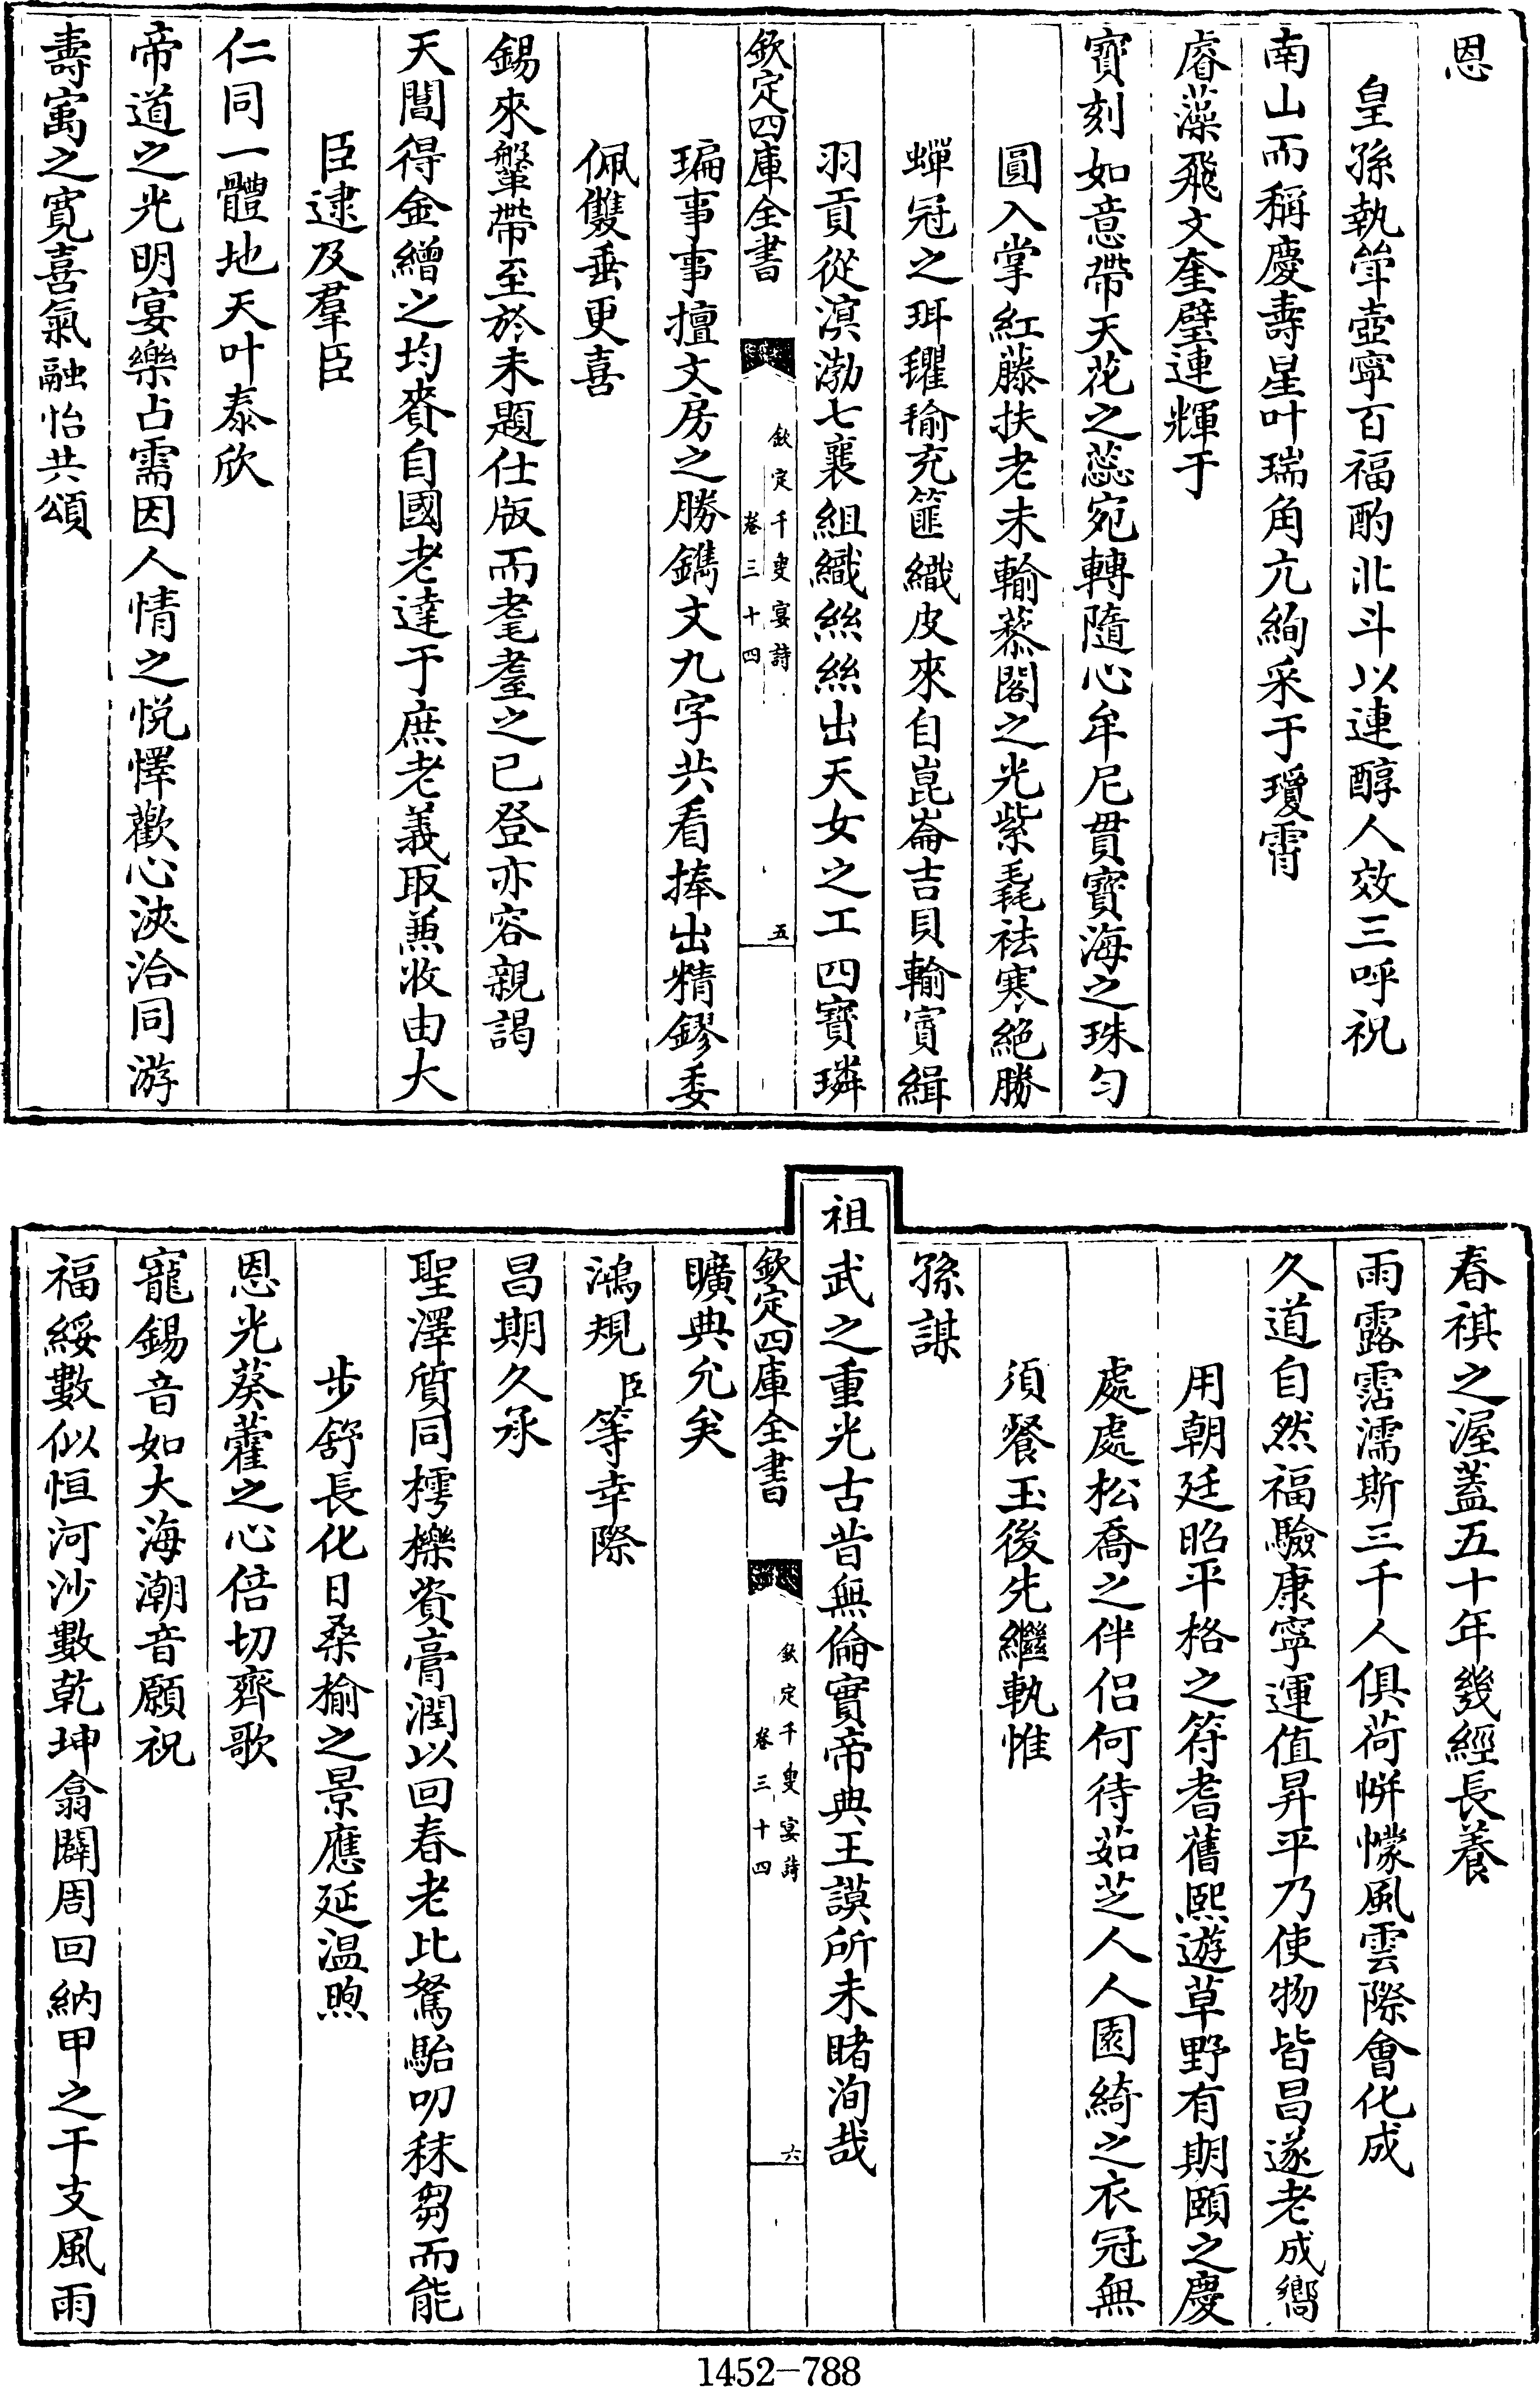 恩
皇孫執斚壺寧百福酌北斗以連醇人效三呼祝
南山而稱慶壽星叶瑞角亢絢采于瓊霄
睿藻飛文奎璧連輝于
寶刻如意帶天花之蕊宛轉隨心牟尼貫寶海之珠勻
圓入掌紅藤扶老未輸藜閣之光紫毳祛寒絶勝
蟬冠之珥瓘瑜充篚織皮來自崑崙吉貝輸賨緝
羽貢從溟渤七襄組織絲絲出天女之工四寶璘
欽定四庫全書
欽定千叟宴詩
卷三十四
五
瑞事事擅文房之勝鐫文九字共看捧出精鏐委
佩雙垂更喜
錫來鞶帶至於未題仕版而耄耋之已登亦容親謁
天閶得金繒之均賚自國老達于庶老義取兼收由大
臣逮及羣臣
仁同一體地天叶泰欣
帝道之光明宴樂占需因人情之悦懌歡心浹洽同游
壽㝢之寛喜氣融怡共頌
春祺之渥蓋五十年幾經長養
雨露霑濡斯三千人俱荷帡幪風雲際會化成
久道自然福驗康寧運值昇平乃使物皆昌遂老成嚮
用朝廷昭平格之符耆舊熙遊草野有期頤之慶
處處松喬之伴侣何待茹芝人人園綺之衣冠無
須餐玉後先繼軌惟
孫謀
祖武之重光古昔無倫實帝典王謨所未睹洵哉
欽定四庫全書
欽定千叟宴詩
卷三十四
六
曠典允矣
鴻規臣等幸際
昌期久承
聖澤質同樗櫟資膏潤以回春老比駑駘叨秣芻而能
步舒長化日桑榆之景應延温煦
恩光葵藿之心倍切齊歌
寵錫音如大海潮音願祝
福綏數似恒河沙數乾坤翕闢周回納甲之干支風雨
1452-788